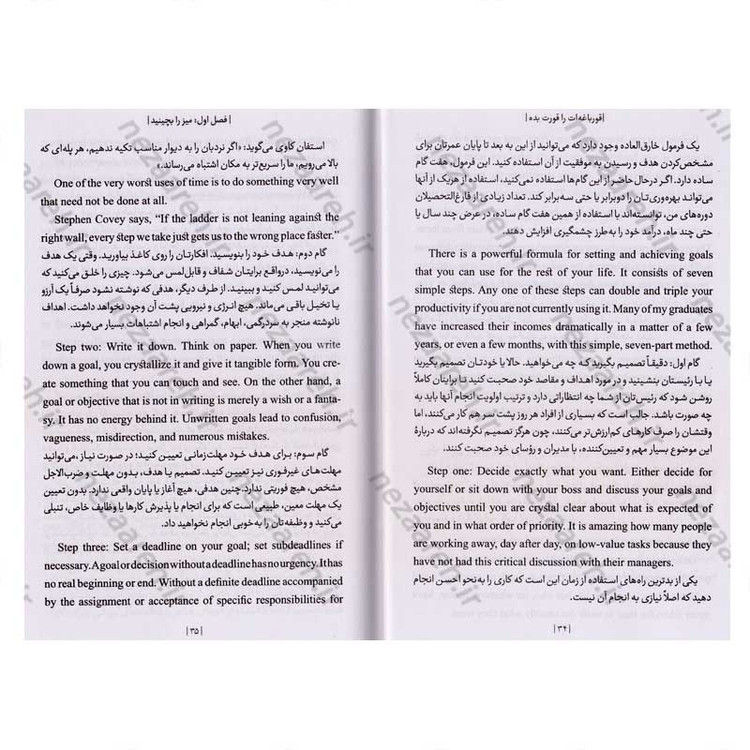 |قورباغه‌ات را قورت بده|
یک فرمول خارق‌العاده وجود دارد که می‌توانید از این به بعد تا پایان عمرتان برای
مشخص‌کردن هدف و رسیدن به موفقیت از آن استفاده کنید. این فرمول، هفت گام
ساده دارد. اگر درحال حاضر از این گام‌ها استفاده نمی‌کنید، استفاده از هریک از آنها
می‌تواند بهره‌وری‌تان را دوبرابر یا حتی سه‌برابر کند. تعداد زیادی از فارغ‌التحصیلان
دوره‌های من، توانسته‌اند با استفاده از همین هفت گام ساده، در عرض چند سال یا
حتی چند ماه، درآمد خود را به‌طرز چشمگیری افزایش دهند.
There is a powerful formula for setting and achieving goals
that you can use for the rest of your life. It consists of seven
simple steps. Any one of these steps can double and triple your
productivity if you are not currently using it. Many of my graduates
have increased their incomes dramatically in a matter of a few
years, or even a few months, with this simple, seven-part method.
گام اول: دقیقاً تصمیم بگیرید که چه می‌خواهید. حالا با خودتان تصمیم بگیرید
یا با رئیستان بنشینید و در مورد اهداف و مقاصد خود صحبت کنید تا برایتان کاملاً
روشن شود که رئیس‌تان از شما چه انتظاراتی دارد و ترتیب اولویت انجام آنها باید به
چه صورت باشد. جالب است که بسیاری از افراد هر روز پشت سر هم کار می‌کنند، اما
وقتشان را صرف کارهای کم‌ارزش‌تر می‌کنند، چون هرگز تصمیم نگرفته‌اند که دربارهٔ
این موضوع بسیار مهم و تعیین‌کننده، با مدیران و رؤسای خود صحبت کنند.
Step one: Decide exactly what you want. Either decide for
yourself or sit down with your boss and discuss your goals and
objectives until you are crystal clear about what is expected of
you and in what order of priority. It is amazing how many people
are working away, day after day, on low-value tasks because they
have not had this critical discussion with their managers.
یکی از بدترین راه‌های استفاده از زمان این است که کاری را به‌نحو احسن انجام
دهید که اصلاً نیازی به انجام آن نیست.
|۳۴|
|فصل اول: میز را بچینید|
استفان کاوی می‌گوید: «اگر نردبان را به دیوار مناسب تکیه ندهیم، هر پله‌ای که
بالا می‌رویم، ما را سریع‌تر به مکان اشتباه می‌رساند.»
One of the very worst uses of time is to do something very well
that need not be done at all.
Stephen Covey says, “If the ladder is not leaning against the
right wall, every step we take just gets us to the wrong place faster.”
گام دوم: هدف خود را بنویسید. افکارتان را روی کاغذ بیاورید. وقتی یک هدف
را می‌نویسید، درواقع برایتان شفاف و قابل‌لمس می‌شود. چیزی را خلق می‌کنید که
می‌توانید لمس کنید و ببینید. از طرف دیگر، هدفی که نوشته نشود صرفاً یک آرزو
یا تخیل باقی می‌ماند. هیچ انرژی و نیرویی پشت آن وجود نخواهد داشت. اهداف
نانوشته منجر به سردرگمی، ابهام، گمراهی و انجام اشتباهات بسیار می‌شوند.
Step two: Write it down. Think on paper. When you write
down a goal, you crystallize it and give it tangible form. You cre-
ate something that you can touch and see. On the other hand, a
goal or objective that is not in writing is merely a wish or a fanta-
sy. It has no energy behind it. Unwritten goals lead to confusion,
vagueness, misdirection, and numerous mistakes.
گام سوم: برای هدف خود مهلت‌زمانی تعیین کنید؛ در صورت نیاز، می‌توانید
مهلت‌های غیرفوری نیز تعیین کنید. تصمیم یا هدف، بدون مهلت و ضرب‌الاجل
مشخص، هیچ فوریتی ندارد. چنین هدفی، هیچ آغاز یا پایان واقعی ندارد. بدون تعیین
یک مهلت معین، طبیعی است که برای انجام یا پذیرش کارها یا وظایف خاص، تنبلی
می‌کنید و وظیفه‌تان را به‌خوبی انجام نخواهید داد.
Step three: Set a deadline on your goal; set subdeadlines if
necessary. A goal or decision without a deadline has no urgency. It has
no real beginning or end. Without a definite deadline accompanied
by the assignment or acceptance of specific responsibilities for
|۳۵|
nezaareh.ir